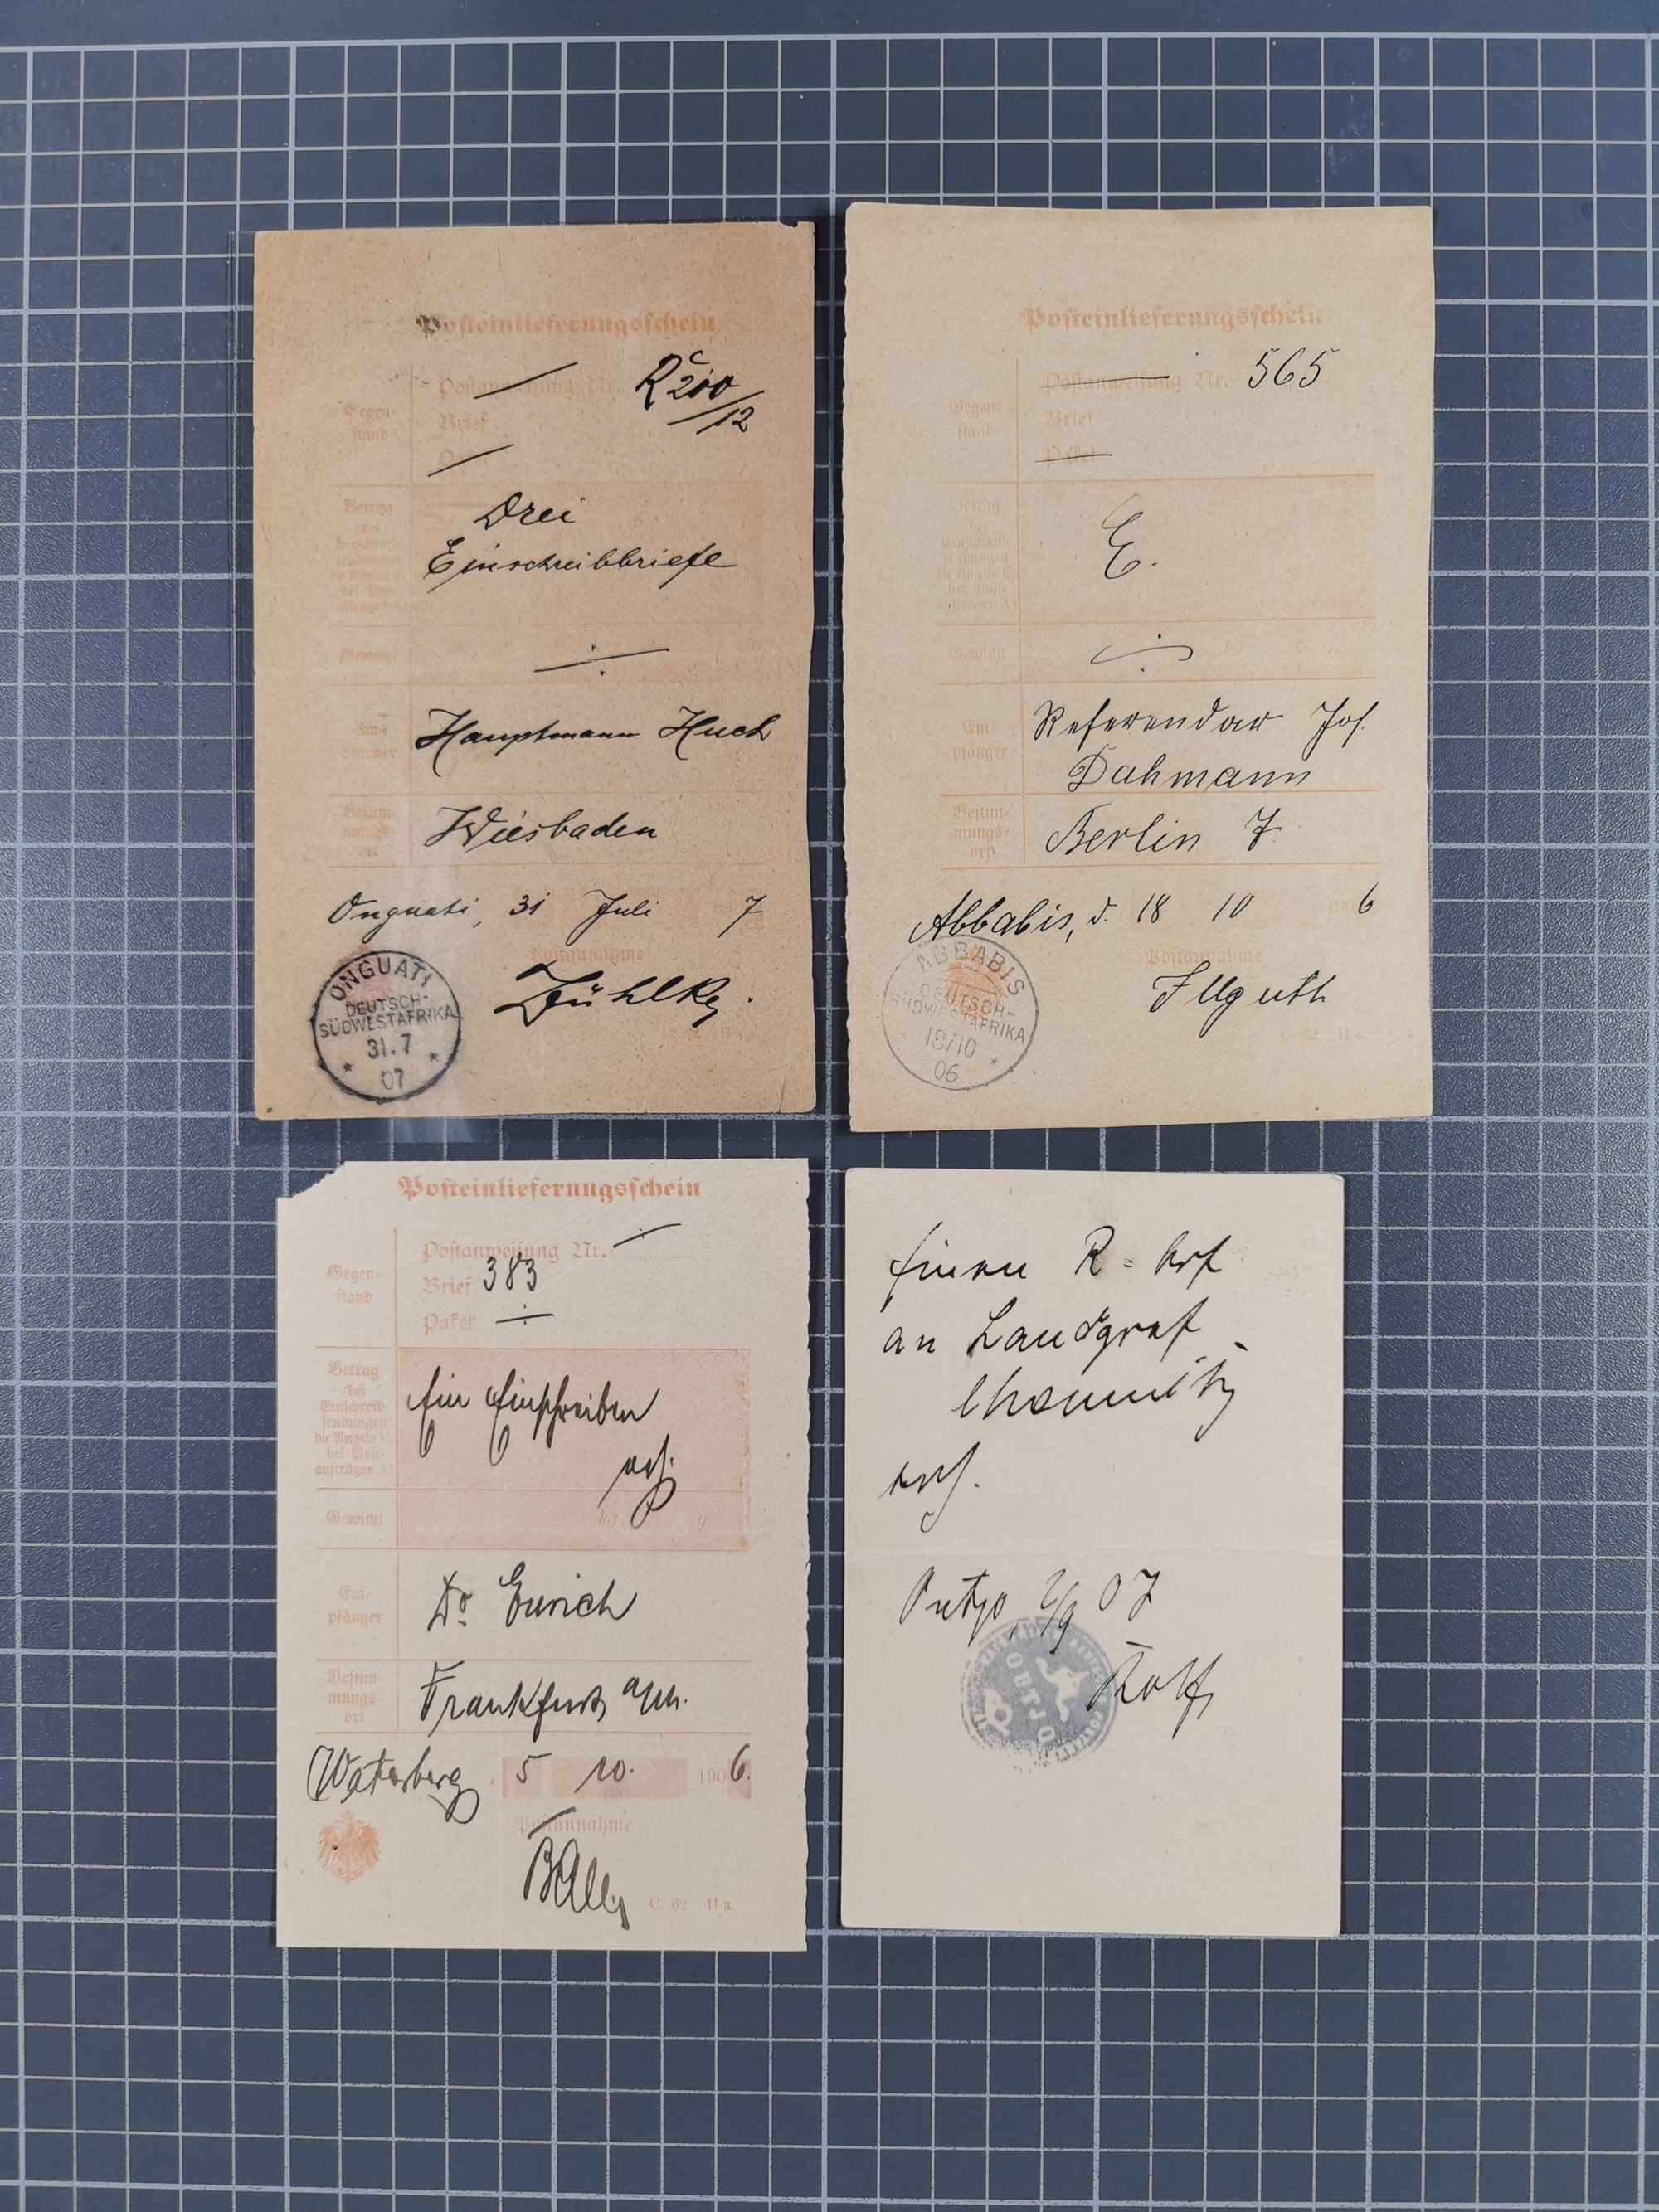 Posteinlieferungsschein
Postanweisung Nr. R 200/12
Gegen-
stand
Brief
Betrag
bei
Drei
Einschreibbriefe
Gewicht
Em-
pfänger
Hauptmann Huch
Bestim-
mungs-
ort
Wiesbaden
Onguati, 31 Juli 7
Postannahme
Zühlke.
ONGUATI
DEUTSCH-
SÜDWESTAFRIKA
31.7
07
C. 62 IIa.
Posteinlieferungsschein
Postanweisung Nr. 565
Gegen-
stand
Brief
Paket
Betrag
bei
Einschreib-
sendungen
die Angabe E,
bei Post-
aufträgen A)
E.
Gewicht
Em-
pfänger
Referendar Jos.
Dahmann
Bestim-
mungs-
ort
Berlin 7
Abbabis, d. 18 10 6
Postannahme
Illguth
ABBABIS
DEUTSCH-
SÜDWESTAFRIKA
18/10
06
C. 62 IIa.
Posteinlieferungsschein
Postanweisung Nr.
Gegen-
stand
Brief 383
Paket
Betrag
(bei
Einschreib-
sendungen
die Angabe E,
bei Post-
aufträgen A)
Ein Einschreiben
Gewicht kg g
Em-
pfänger
Dr. Eurich
Bestim-
mungs-
ort
Frankfurt a/M.
Waterberg, 5 10. 1906.
Postannahme
C. 62 IIa
Einen R = Brf
an Landgraf
Chemnitz
Outjo, 2/9 07
OUTJO
Rolf